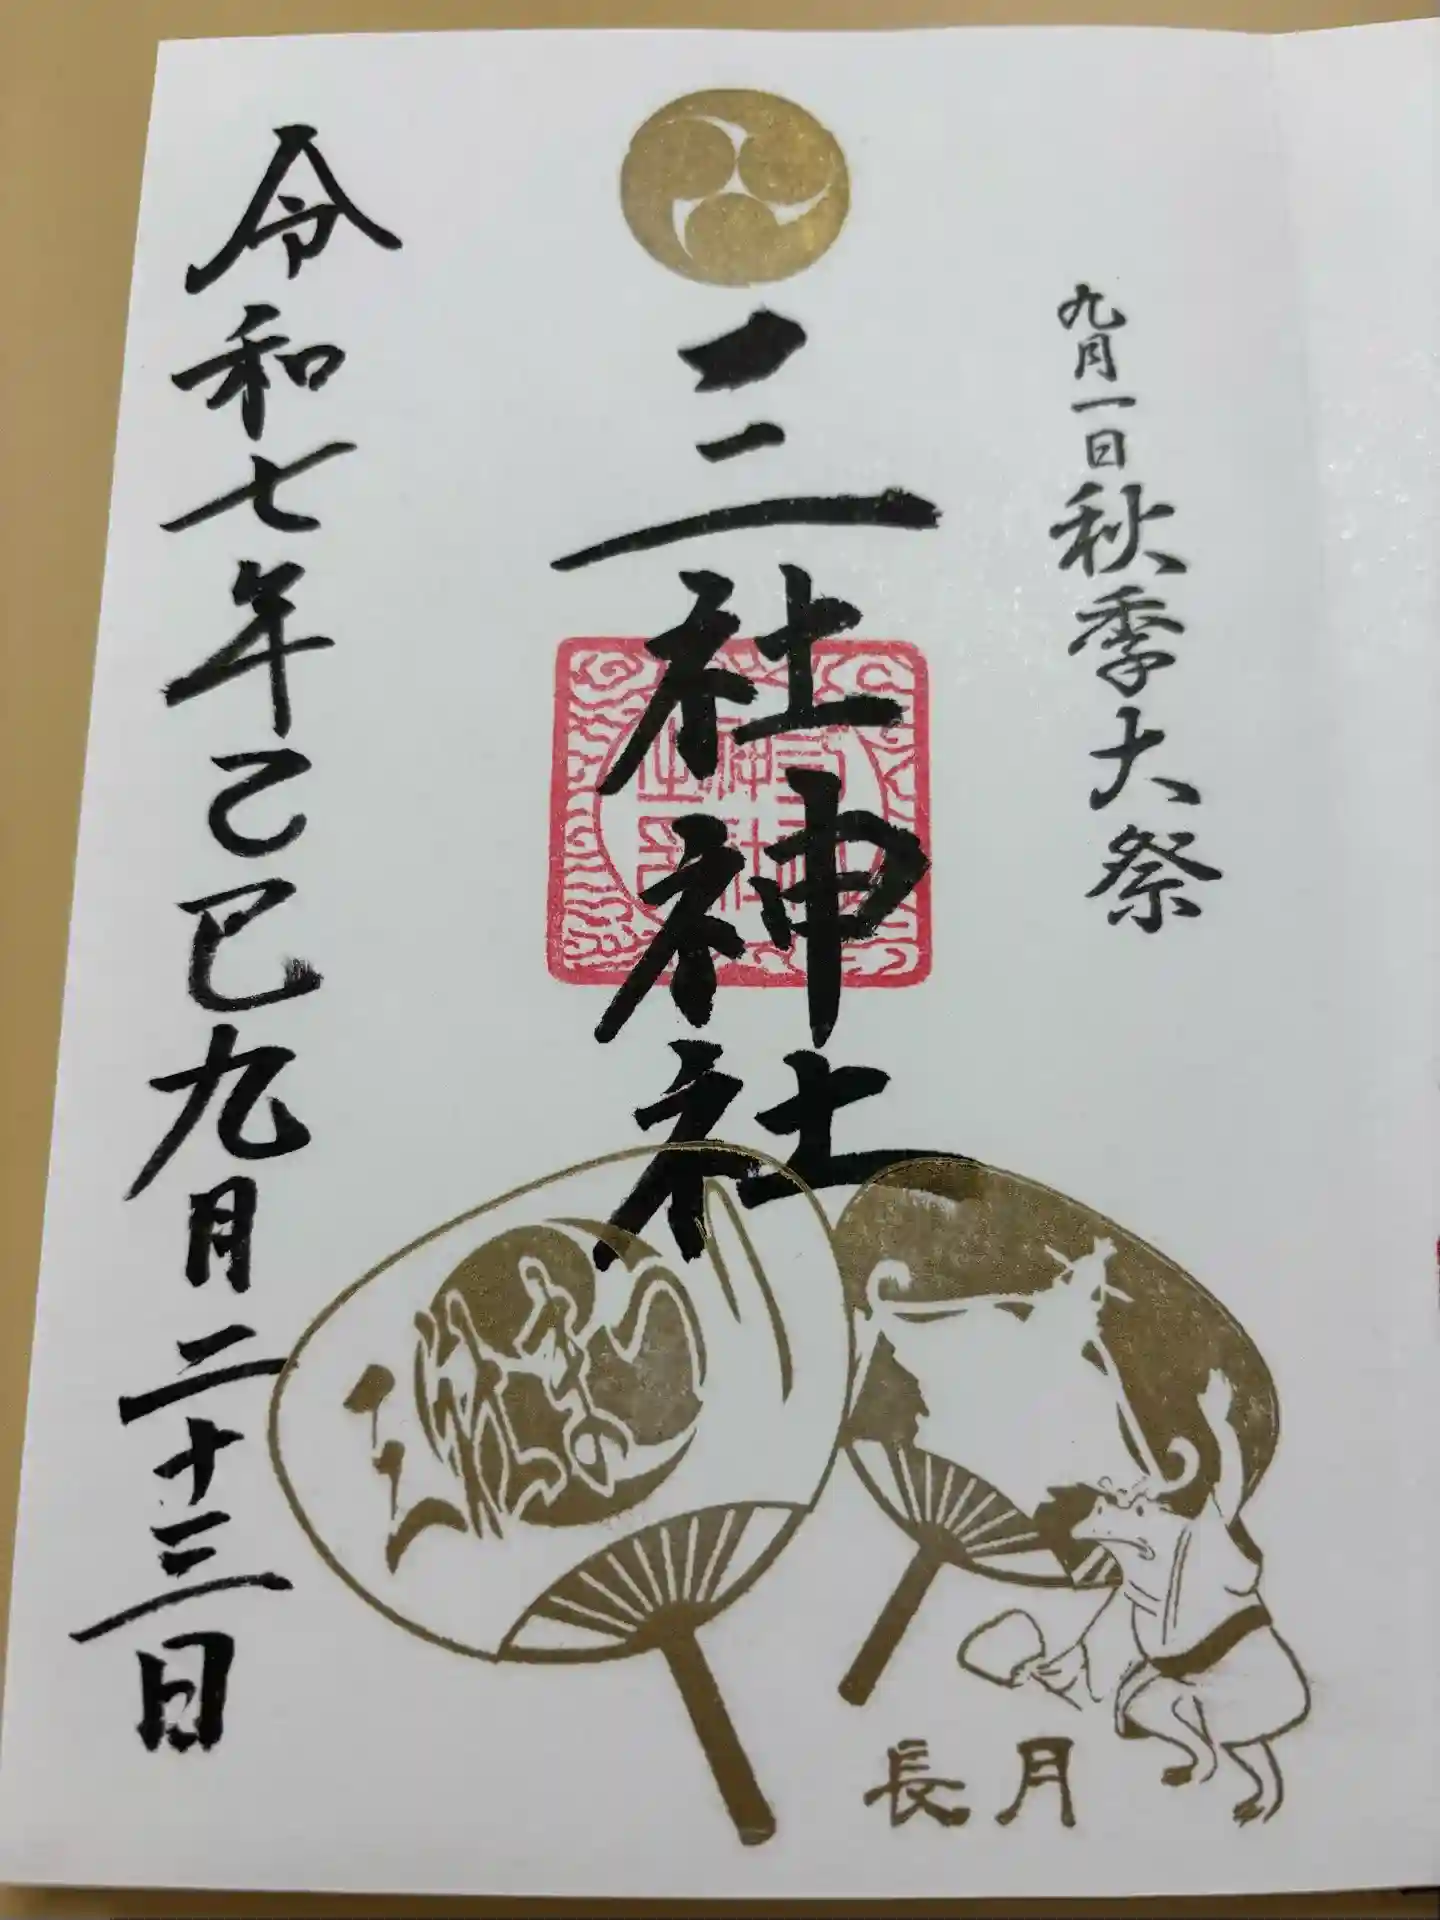 九月一日秋季大祭
三社神社
令和七年乙巳九月二十三日
長月